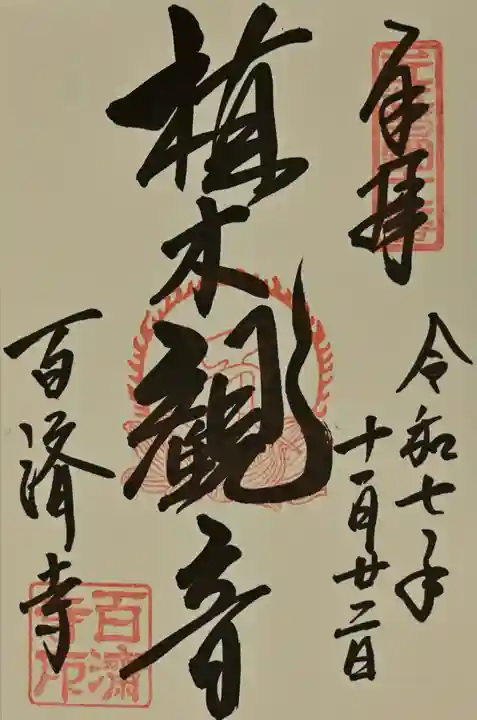 奉拝
令和七年
十一月廿二日
植木觀音
百済寺
百濟寺印